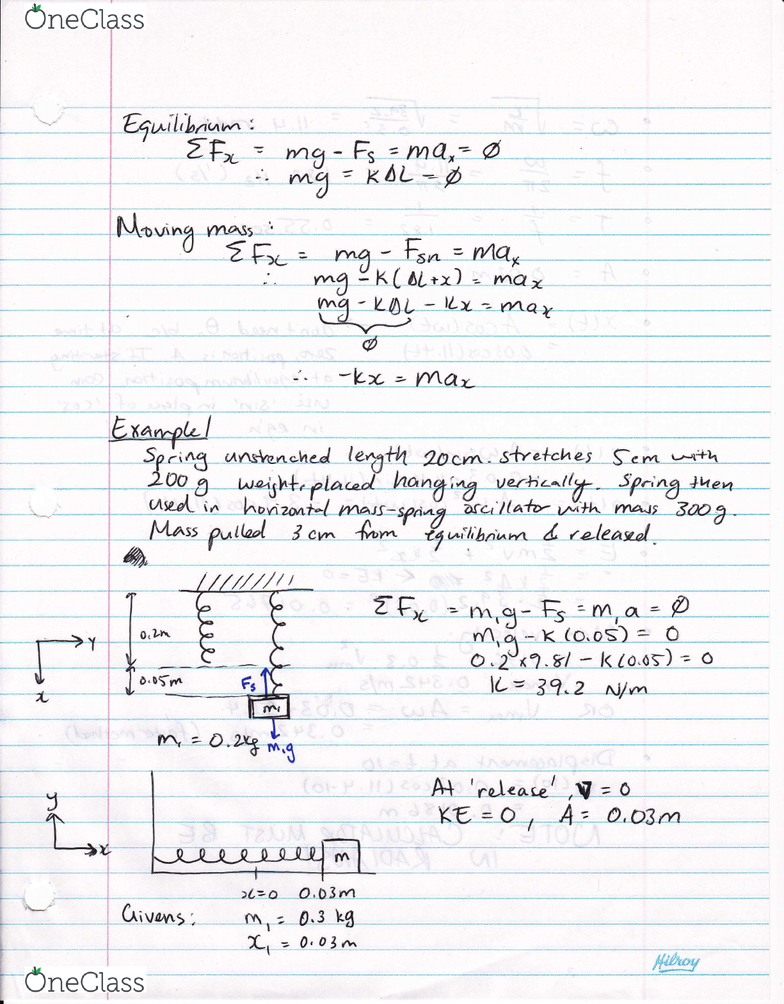 OneClass
Equilibrium:
ΣFx = mg - Fs = max = ∅
∴ mg = KΔL = ∅
Moving mass:
ΣFx = mg - Fsn = max
∴ mg - K(ΔL+x) = max
mg - KΔL - Kx = max
∅
∴ -Kx = max
Example 1
Spring unstrenched length 20cm. stretches 5cm with
200g weight placed hanging vertically. Spring then
used in horizontal mass-spring oscillator with mass 300g.
Mass pulled 3cm from equilibrium & released.
ΣFx = m1g - Fs = m1a = ∅
m1g - K(0.05) = 0
0.2*9.81 - K(0.05) = 0
K = 39.2 N/m
y
x
0.2m
0.05m
Fs
m1
m1 = 0.2kg
m1g
At 'release', V = 0
KE = 0, A = 0.03m
y
x
m
x=0 0.03m
Givens: m1 = 0.3 kg
x1 = 0.03m
Hilroy
OneClass